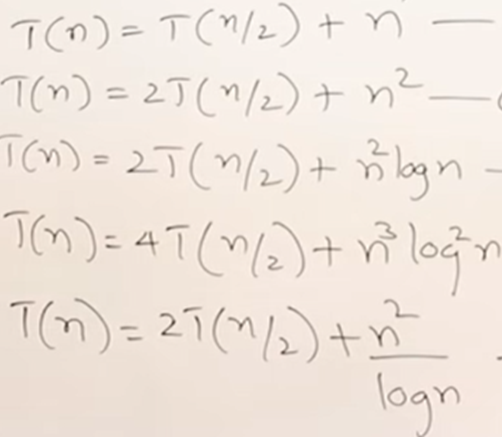 T(n) = T(n/2) + n —
T(n) = 2T(n/2) + n² —
T(n) = 2T(n/2) + n² log n -
T(n) = 4T(n/2) + n³ log² n
T(n) = 2T(n/2) + n²/log n -